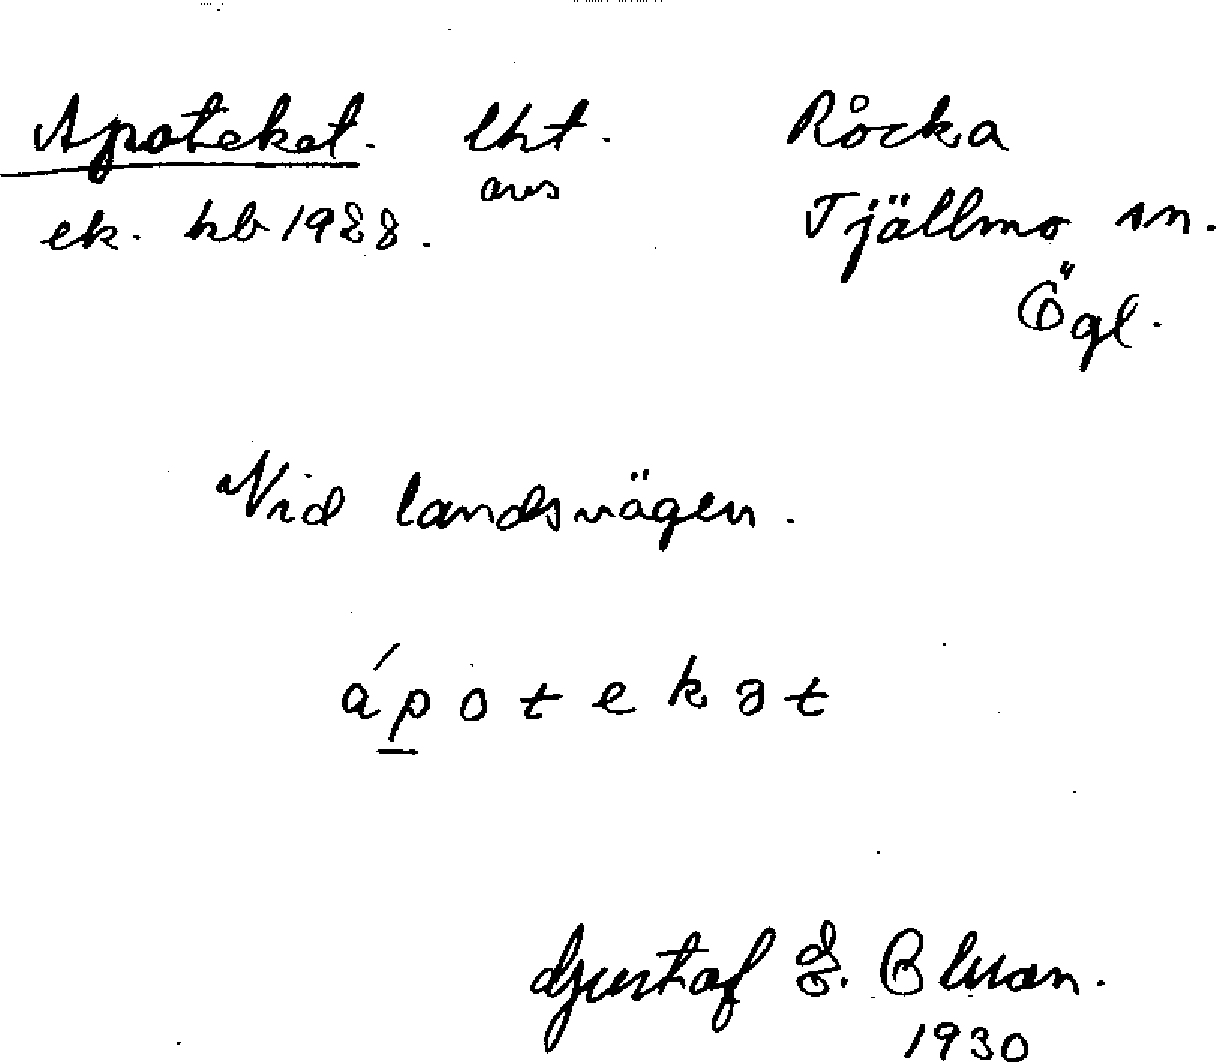 Apoteket. lht. Röcka
avs
ek. hb 1928. Tjällmo sn.
Ögl.
Vid landsvägen.
ápotekɜt
Gustaf E. Bluan.
1930